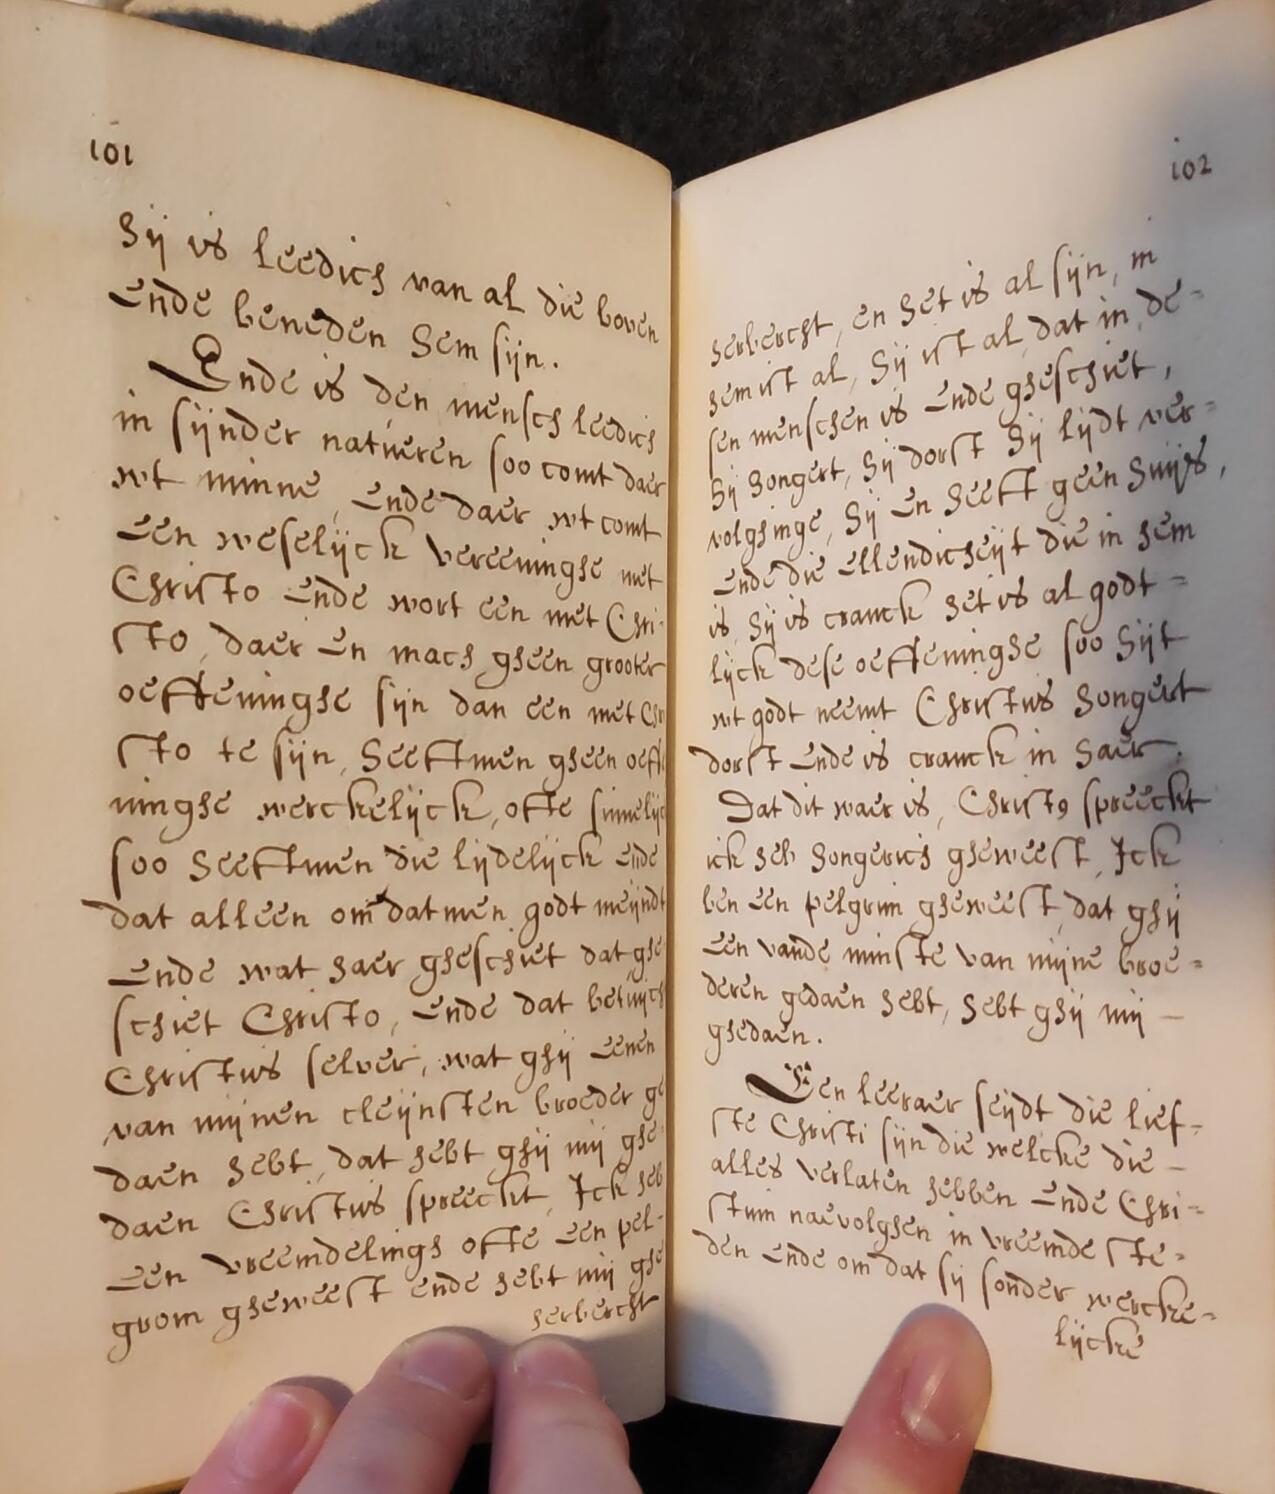 101
hij is leedich van al die boven
ende beneden hem sijn.
Ende is den mensch leedich
in sijnder natueren soo comt daer
wt minne, ende daer wt comt
een weselijck vereeninghe met
Christo ende wort een met Chri-
sto, daer en mach gheen grooter
oeffeninghe sijn dan een met Chri
sto te sijn, heeftmen gheen oeffe
ninghe werckelijck, ofte sinnelijc
soo heeftmen die lijdelijck ende
dat alleen om datmen godt meijndt
ende wat haer gheschiet dat ghe
schiet Christo, ende dat betuijch
Christus selver, wat ghij eenen
van mijnen cleijnsten broeder ge
daen hebt, dat hebt ghij mij ghe-
daen Christus spreeckt, Ick heb
een vreemdelingh ofte een pel-
grom gheweest ende hebt mij ghe
herbercht
102
herbercht, en het is al sijn, in
hem ist al, hij ist al dat in de-
sen menschen is ende gheschiet,
hij hongert, hij dorst hij lijdt ver-
volghinge, hij en heeft geen huijs,
ende die ellendicheijt die in hem
is, hij is cranck het is al godt-
lijck dese oeffeninghe soo hijt
wt godt neemt Christus hongert
dorst ende is cranck in haer.
Dat dit waer is, Christ9 spreeckt
ick heb hongerich gheweest, Ick
ben een pelgrim gheweest, dat ghij
een vande minste van mijne broe-
deren gedaen hebt, hebt ghij mij -
ghedaen.
Een leeraer seijdt die lief-
ste Christi sijn die welcke die -
alles verlaten hebben ende Chri-
stum naevolghen in vreemde ste-
den ende om dat sij sonder wercke-
lijcke